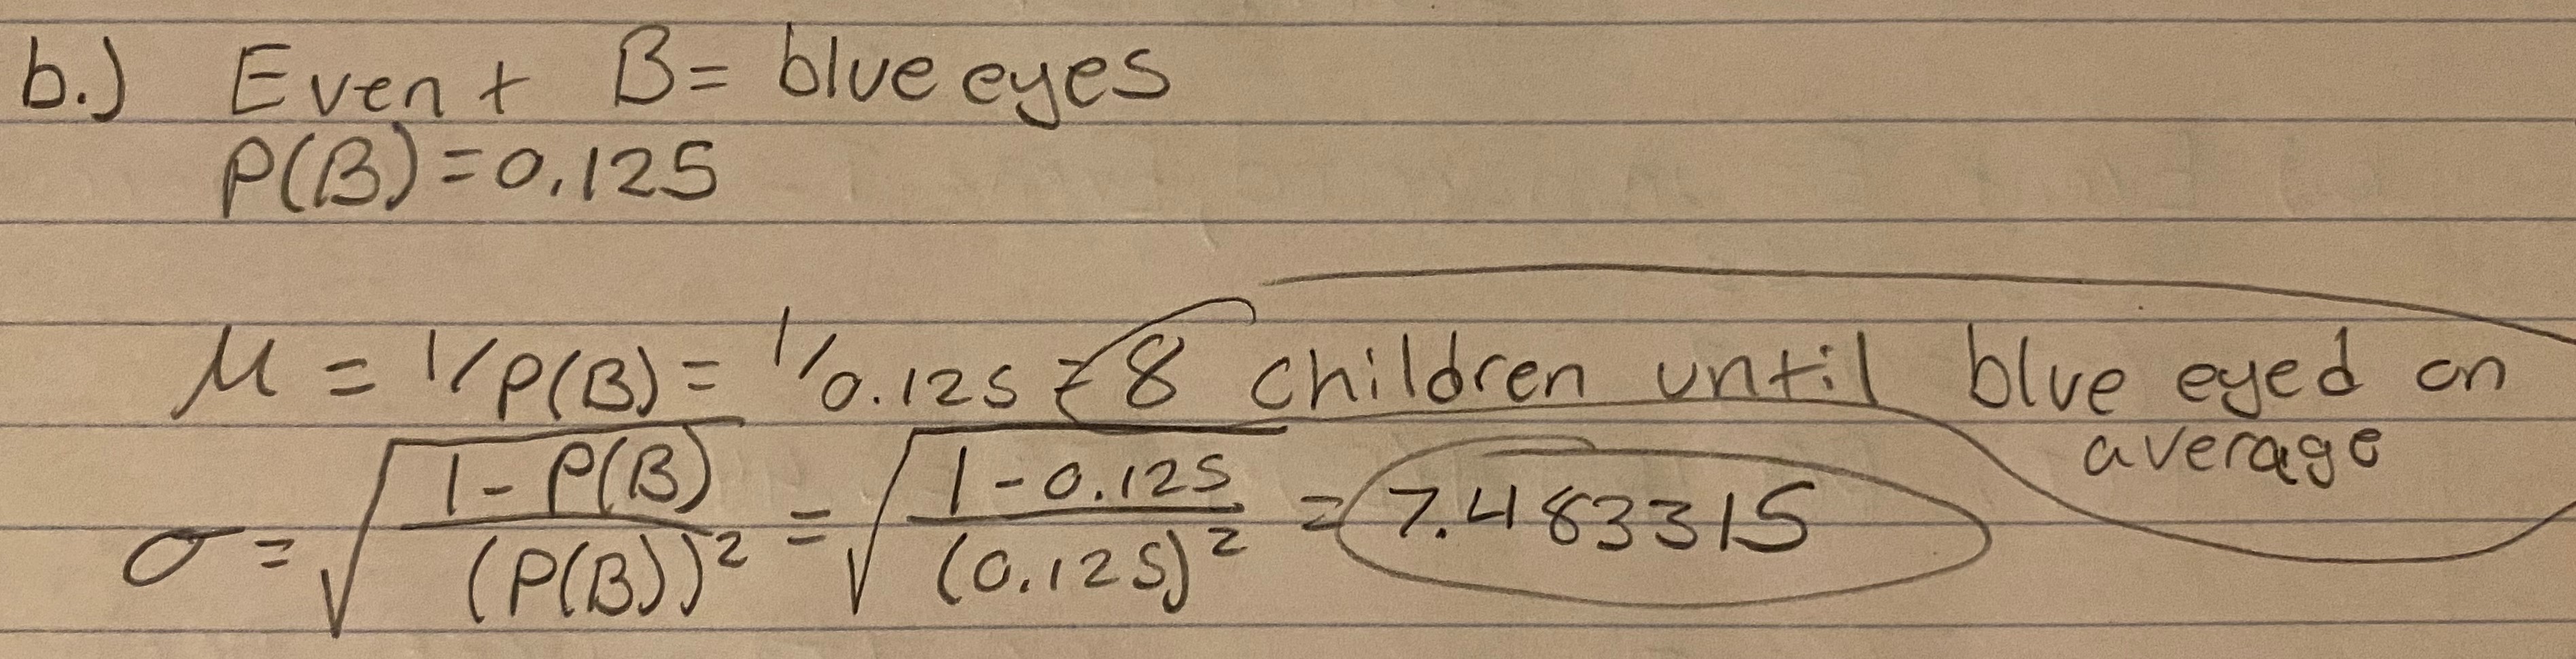 b.) Event B = blue eyes
P(B) = 0.125
μ = 1/P(B) = 1/0.125 = 8 children until blue eyed on
average
σ = √((1 - P(B))/(P(B))²) = √((1 - 0.125)/(0.125)²) = 7.483315